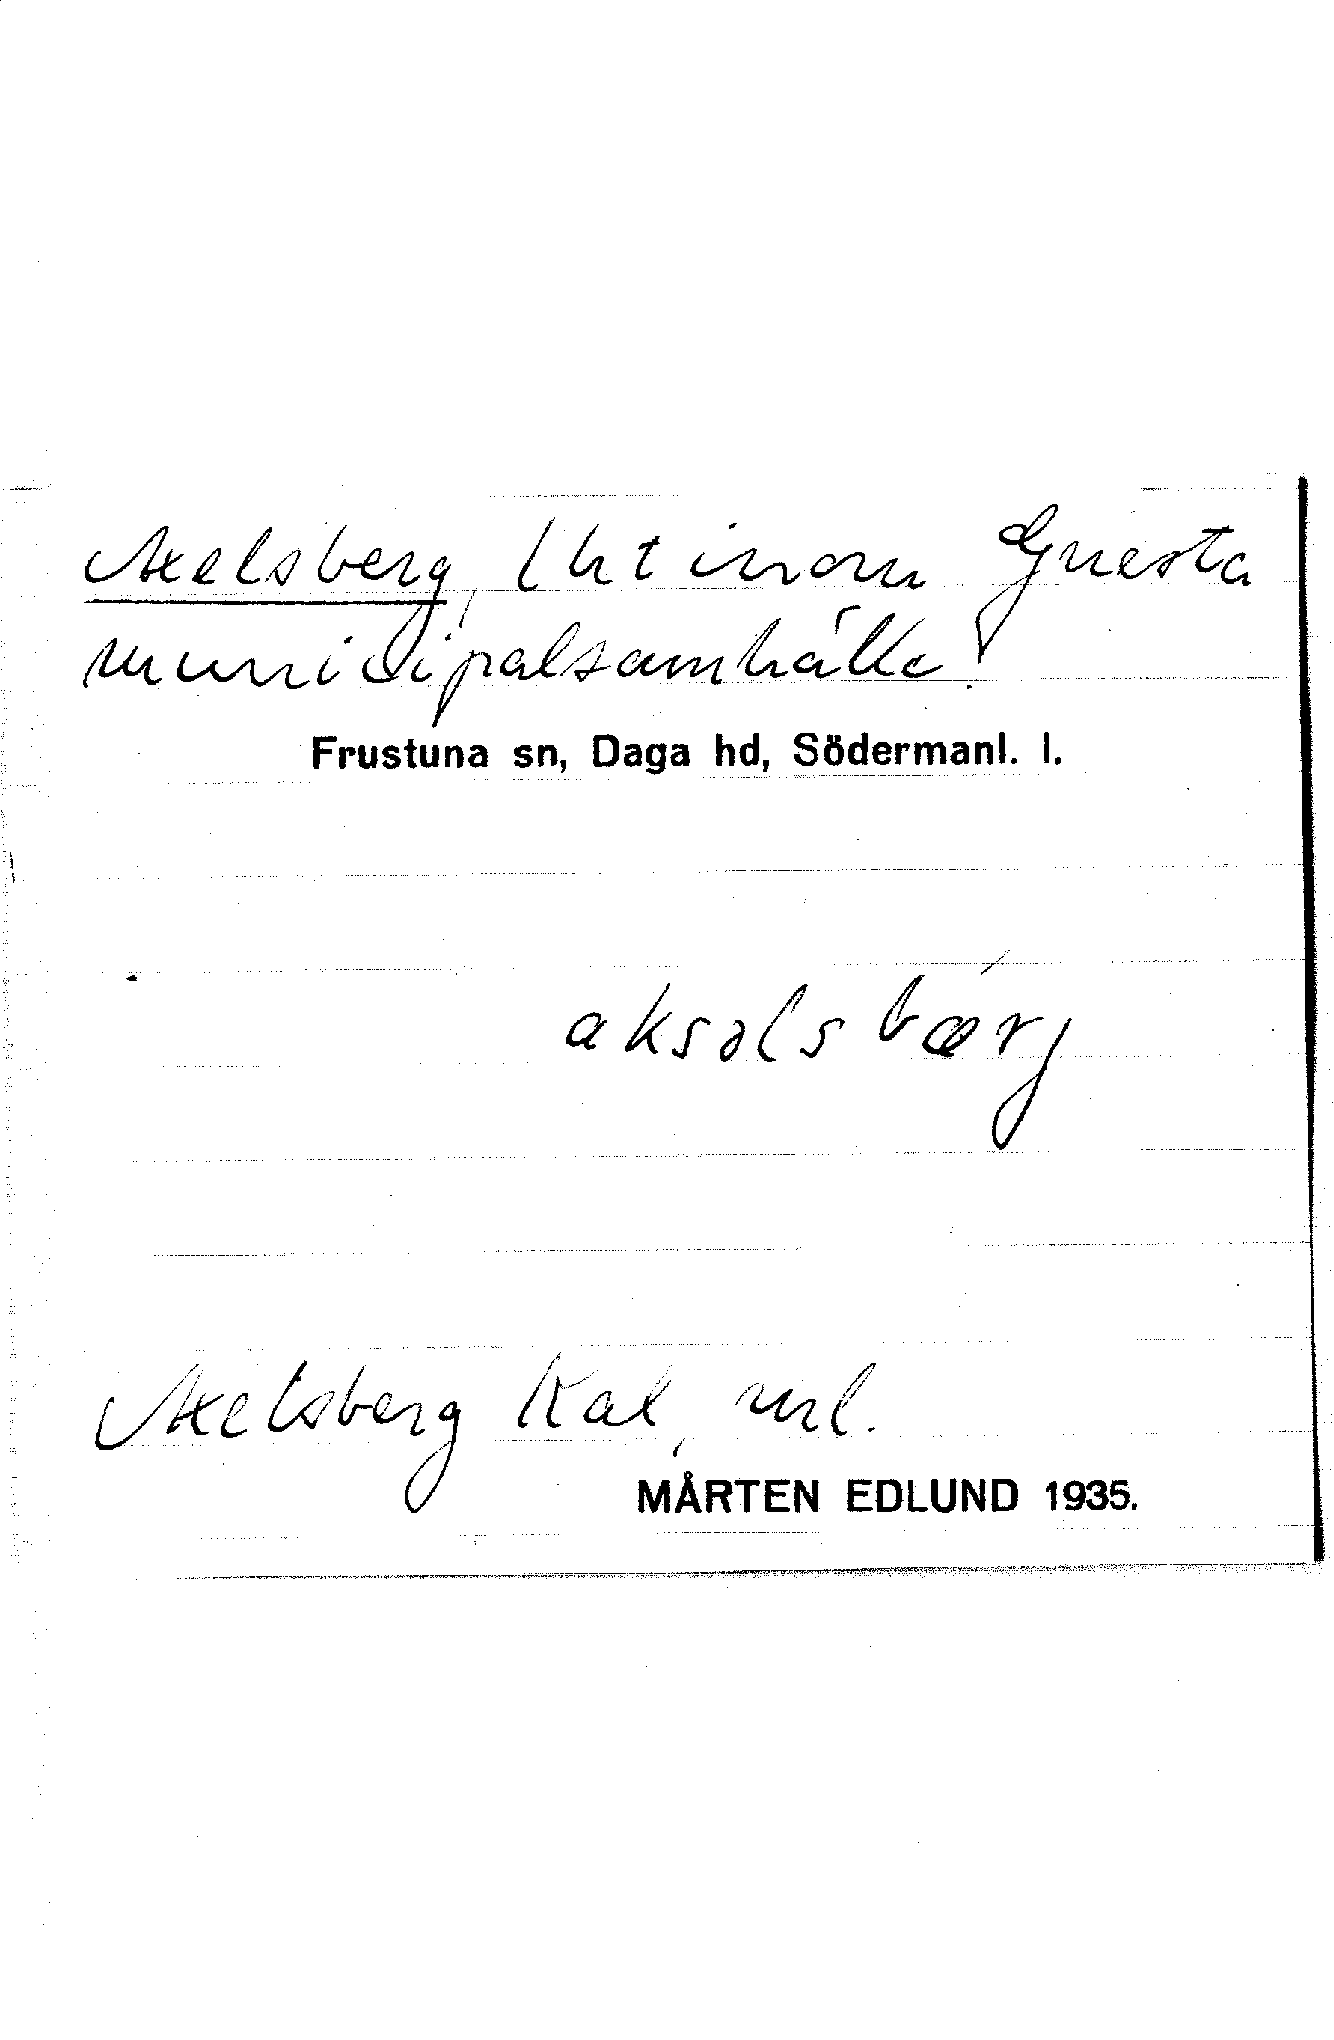 Axelsberg, lht inom Gnesta
municipalsamhälle.
Frustuna sn, Daga hd, Södermanl. l.
aksəlsbærj
Axelsberg Kal, url.
MÅRTEN EDLUND 1935.